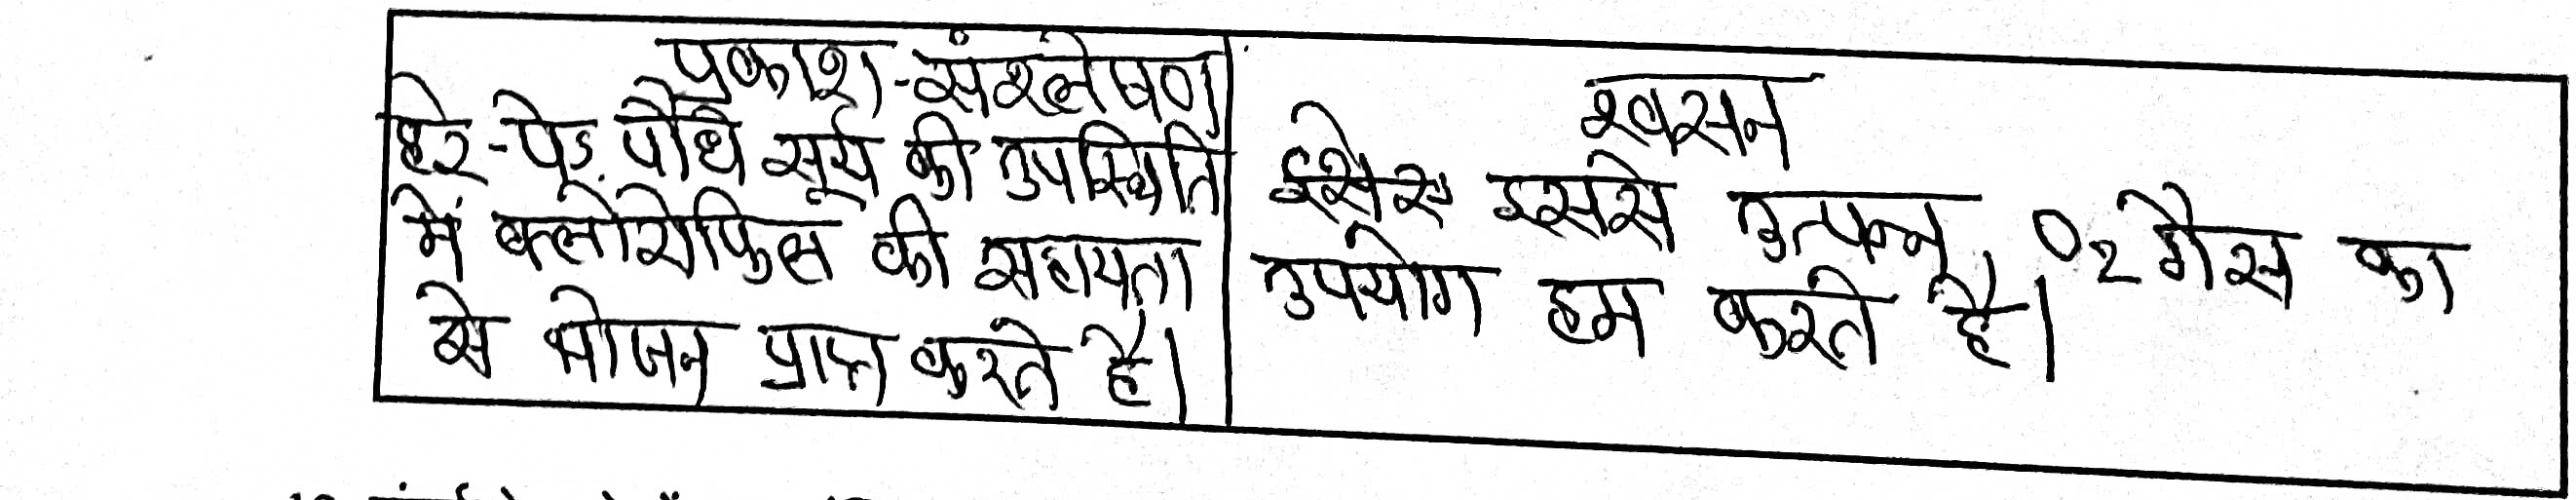 प्रकाश-संश्लेषण
हरे-पेड़ पौधे सूर्य की उपस्थिति
में क्लोरोफिल की सहायता
से भोजन प्राप्त करते है।
श्वसन
इससे उत्पन्न O₂ गैस का
उपयोग हम करते है।